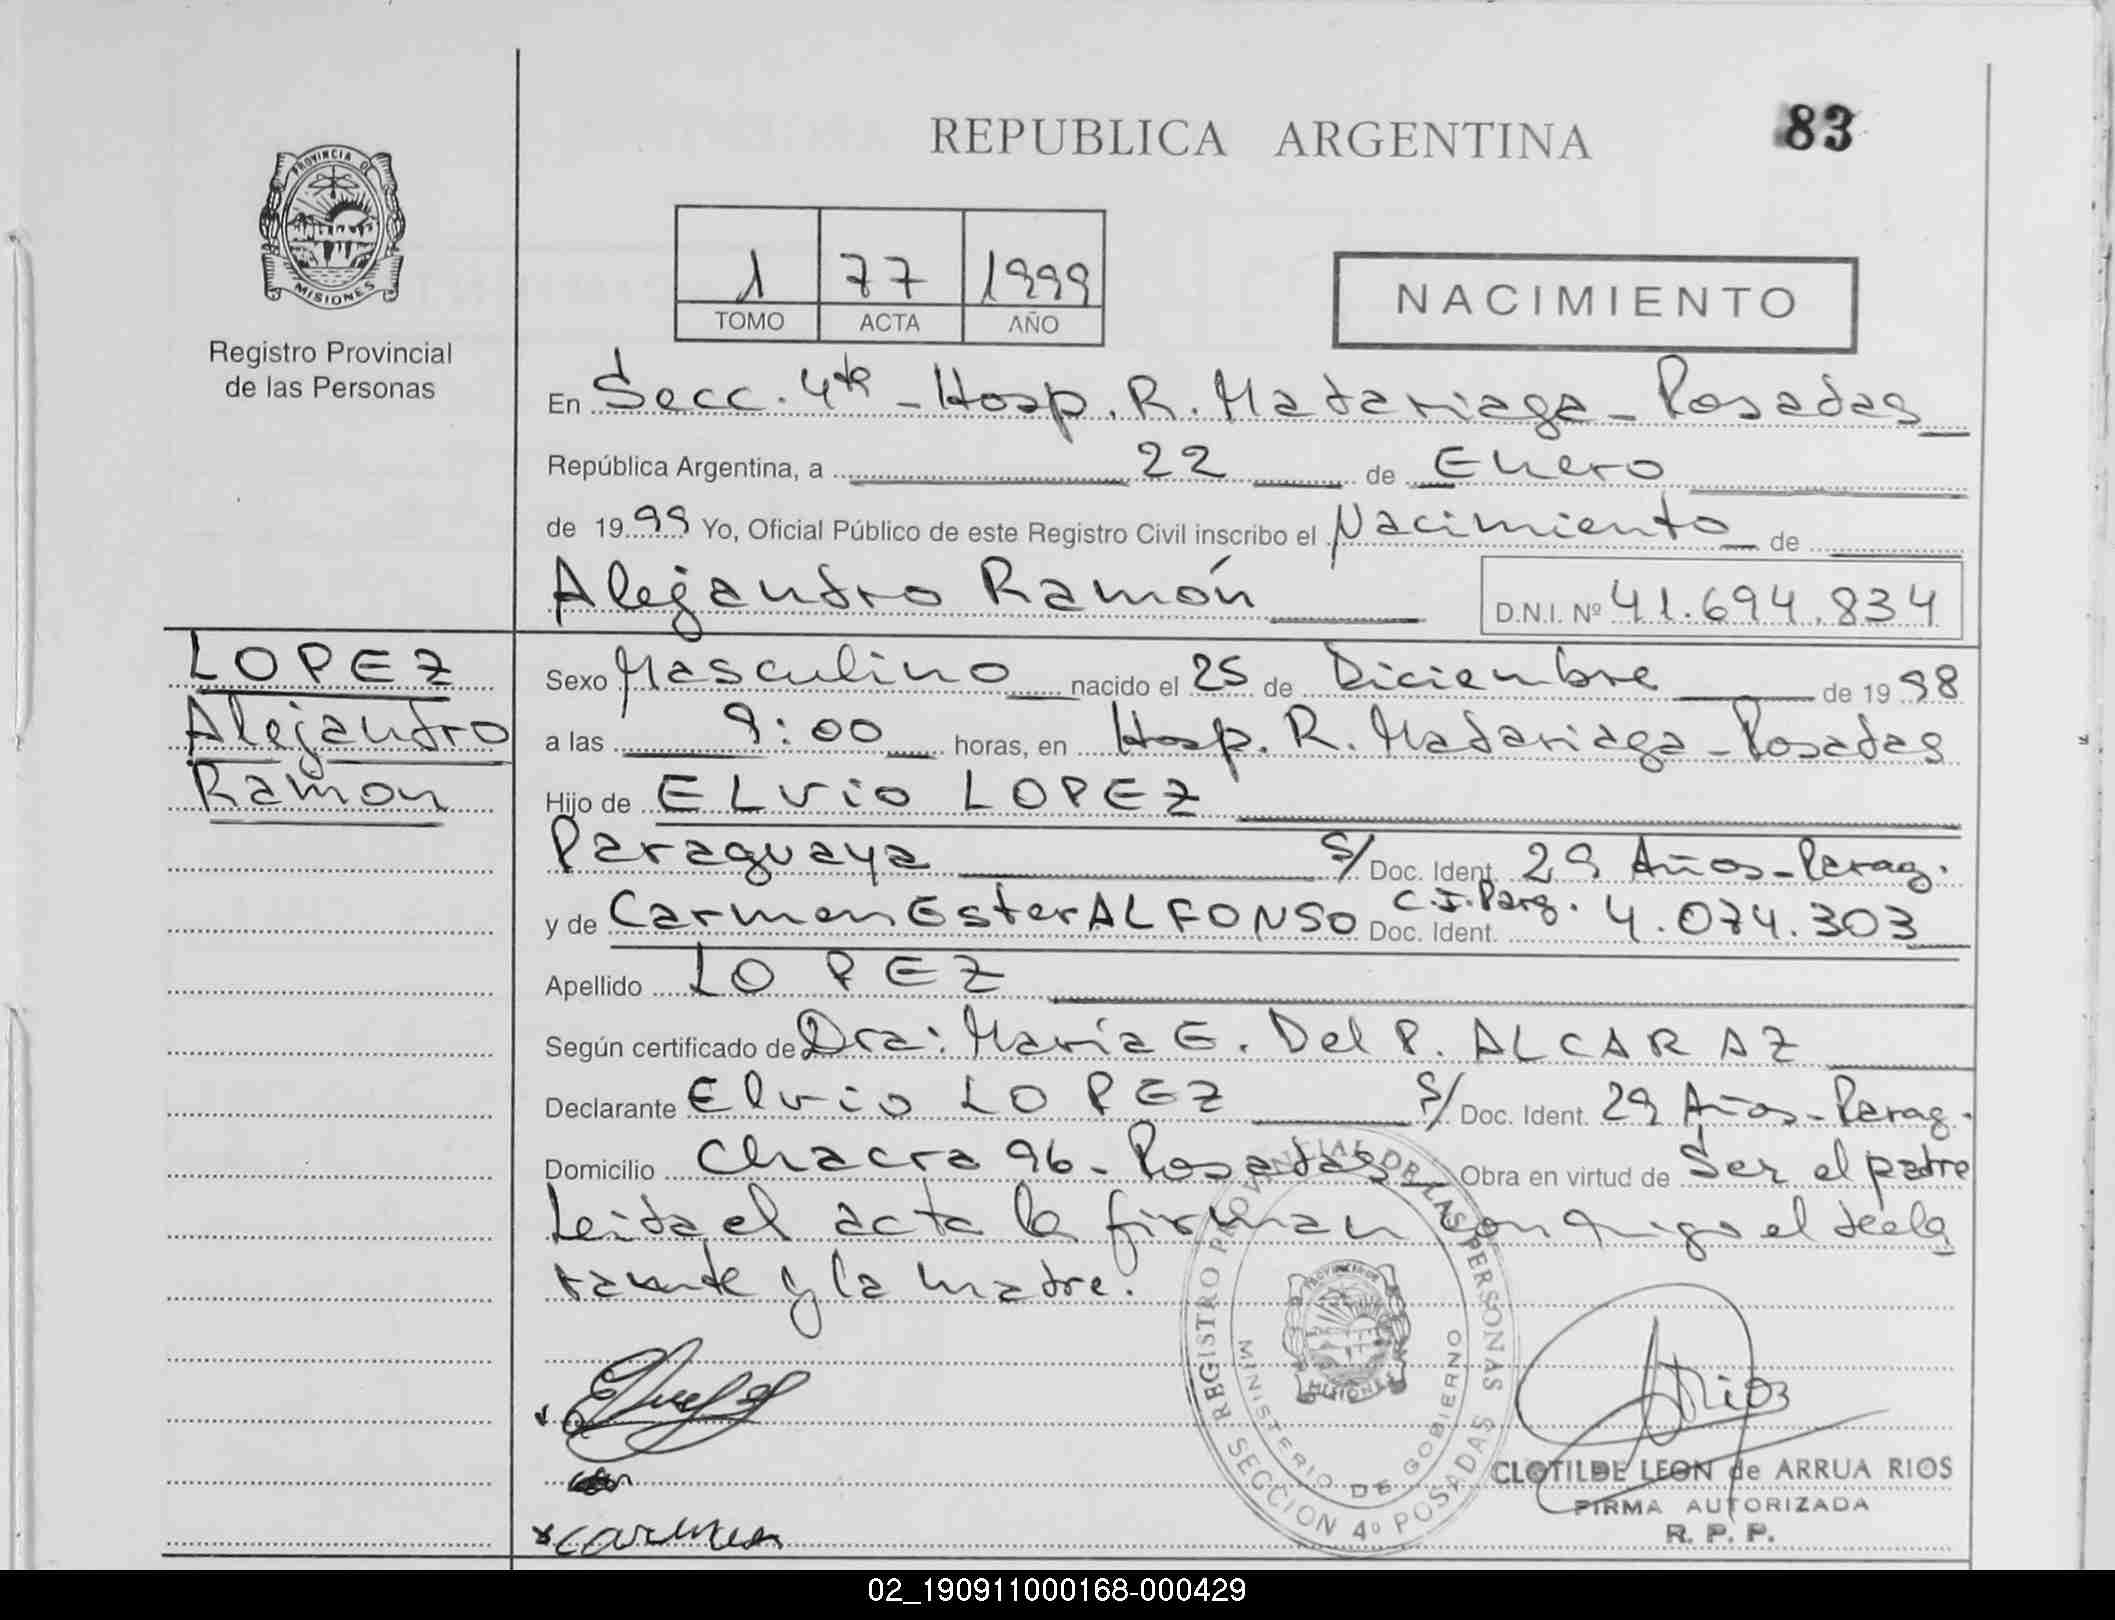 REPUBLICA ARGENTINA
83
PROVINCIA DE
MISIONES
Registro Provincial
de las Personas
1 77 1999
TOMO ACTA AÑO
NACIMIENTO
En Secc. 4ta - Hosp. R. Madariaga - Posadas
República Argentina, a 22 de Enero
de 1999 Yo, Oficial Público de este Registro Civil inscribo el Nacimiento de
Alejandro Ramón D.N.I. Nº 41.694.834
LOPEZ
Alejandro
Ramon
Sexo Masculino nacido el 25 de Diciembre de 1998
a las 9:00 horas, en Hosp. R. Madariaga - Posadas
Hijo de ELvio LOPEZ
Paraguaya S/ Doc. Ident. 29 Años - Parag.
y de Carmen Ester ALFONSO Doc. Ident. C.I. Parg. 4.074.303
Apellido LOPEZ
Según certificado de Dra: María E. Del P. ALCARAZ
Declarante Elvio LOPEZ S/ Doc. Ident. 29 Años - Parag.
Domicilio Chacra 96 - Posadas Obra en virtud de Ser el padre
Leida el acta la firman conmigo el decla
rante y la madre.
REGISTRO PROVINCIAL DE LAS PERSONAS
MINISTERIO DE GOBIERNO
MISIONES
SECCION 4º POSADAS
Rios
CLOTILDE LEON de ARRUA RIOS
FIRMA AUTORIZADA
R. P. P.
carmen
02_190911000168-000429